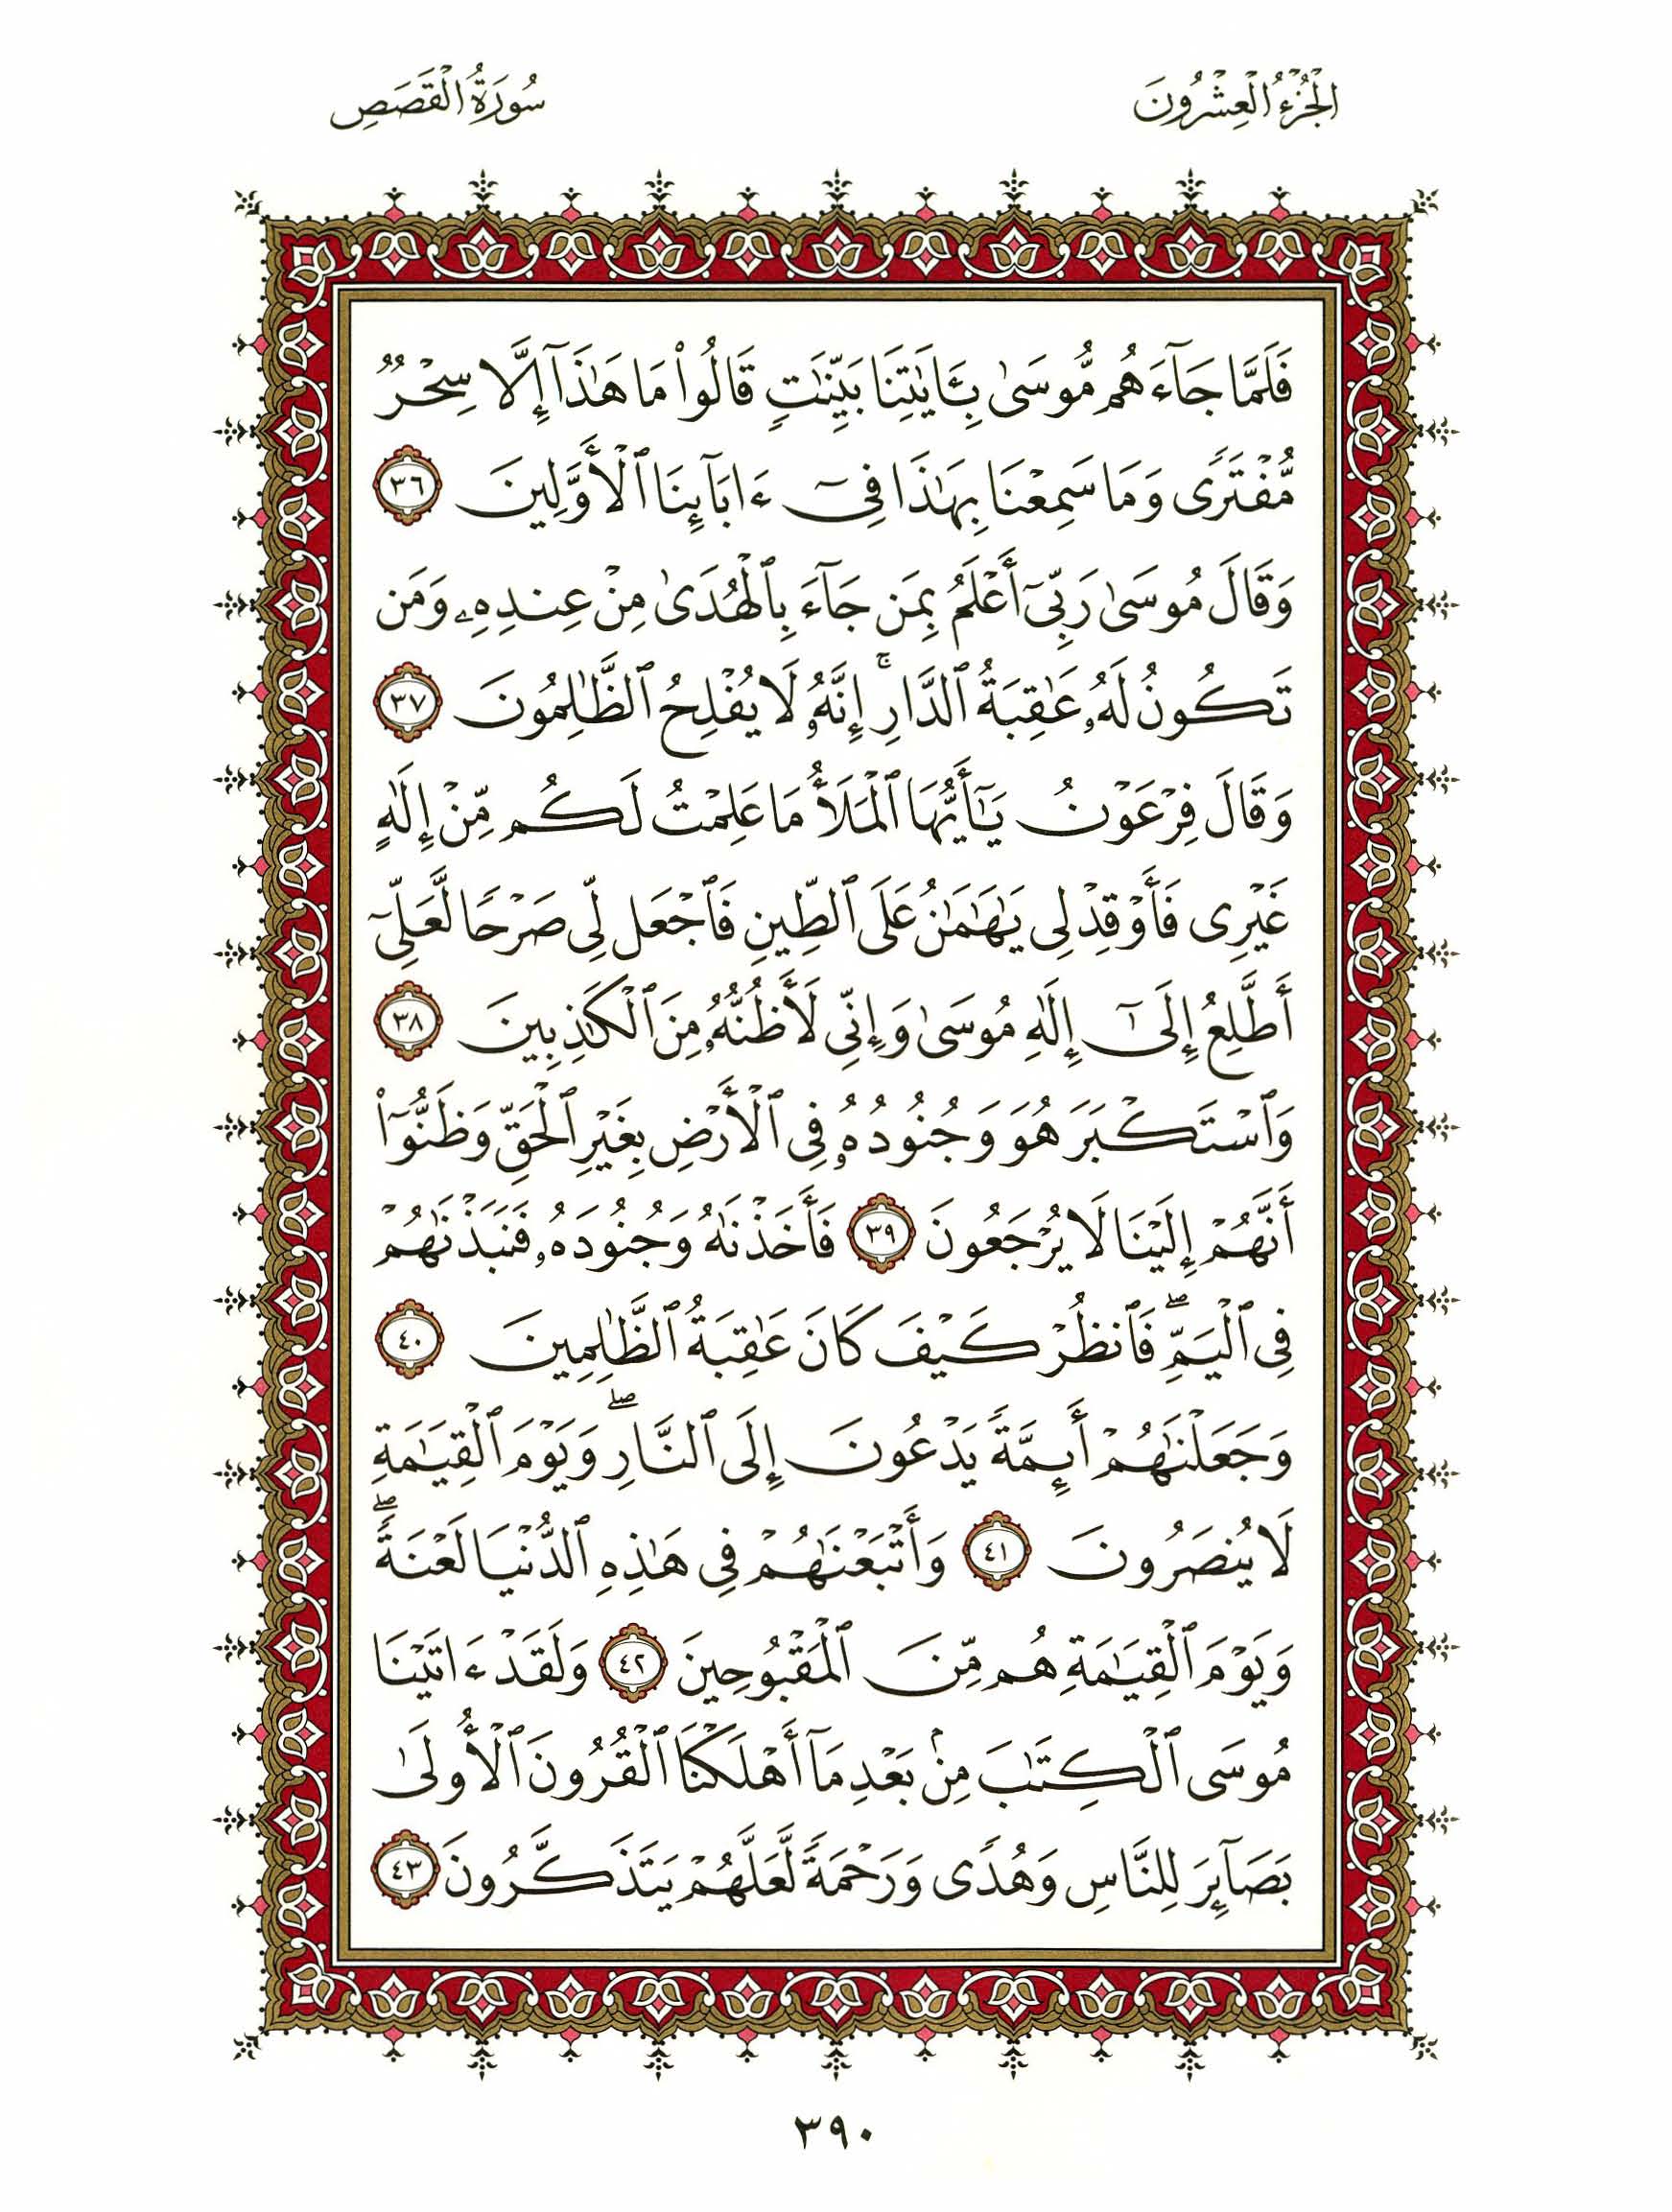 الجُزْءُ الْعِشْرُونَ
سُورَةُ الْقَصَصِ
فَلَمَّا جَآءَهُم مُّوسَىٰ بِـَٔايَٰتِنَا بَيِّنَٰتٍ قَالُوا۟ مَا هَٰذَآ إِلَّا سِحْرٌ
مُّفْتَرًى وَمَا سَمِعْنَا بِهَٰذَا فِىٓ ءَابَآئِنَا ٱلْأَوَّلِينَ ٣٦
وَقَالَ مُوسَىٰ رَبِّىٓ أَعْلَمُ بِمَن جَآءَ بِٱلْهُدَىٰ مِنْ عِندِهِۦ وَمَن
تَكُونُ لَهُۥ عَٰقِبَةُ ٱلدَّارِ ۚ إِنَّهُۥ لَا يُفْلِحُ ٱلظَّٰلِمُونَ ٣٧
وَقَالَ فِرْعَوْنُ يَٰٓأَيُّهَا ٱلْمَلَأُ مَا عَلِمْتُ لَكُم مِّنْ إِلَٰهٍ
غَيْرِى فَأَوْقِدْ لِى يَٰهَٰمَٰنُ عَلَى ٱلطِّينِ فَٱجْعَل لِّى صَرْحًا لَّعَلِّىٓ
أَطَّلِعُ إِلَىٰٓ إِلَٰهِ مُوسَىٰ وَإِنِّى لَأَظُنُّهُۥ مِنَ ٱلْكَٰذِبِينَ ٣٨
وَٱسْتَكْبَرَ هُوَ وَجُنُودُهُۥ فِى ٱلْأَرْضِ بِغَيْرِ ٱلْحَقِّ وَظَنُّوٓا۟
أَنَّهُمْ إِلَيْنَا لَا يُرْجَعُونَ ٣٩ فَأَخَذْنَٰهُ وَجُنُودَهُۥ فَنَبَذْنَٰهُمْ
فِى ٱلْيَمِّ ۖ فَٱنظُرْ كَيْفَ كَانَ عَٰقِبَةُ ٱلظَّٰلِمِينَ ٤٠
وَجَعَلْنَٰهُمْ أَئِمَّةً يَدْعُونَ إِلَى ٱلنَّارِ ۖ وَيَوْمَ ٱلْقِيَٰمَةِ
لَا يُنصَرُونَ ٤١ وَأَتْبَعْنَٰهُمْ فِى هَٰذِهِ ٱلدُّنْيَا لَعْنَةً ۖ
وَيَوْمَ ٱلْقِيَٰمَةِ هُم مِّنَ ٱلْمَقْبُوحِينَ ٤٢ وَلَقَدْ ءَاتَيْنَا
مُوسَى ٱلْكِتَٰبَ مِنۢ بَعْدِ مَآ أَهْلَكْنَا ٱلْقُرُونَ ٱلْأُولَىٰ
بَصَآئِرَ لِلنَّاسِ وَهُدًى وَرَحْمَةً لَّعَلَّهُمْ يَتَذَكَّرُونَ ٤٣
٣٩٠